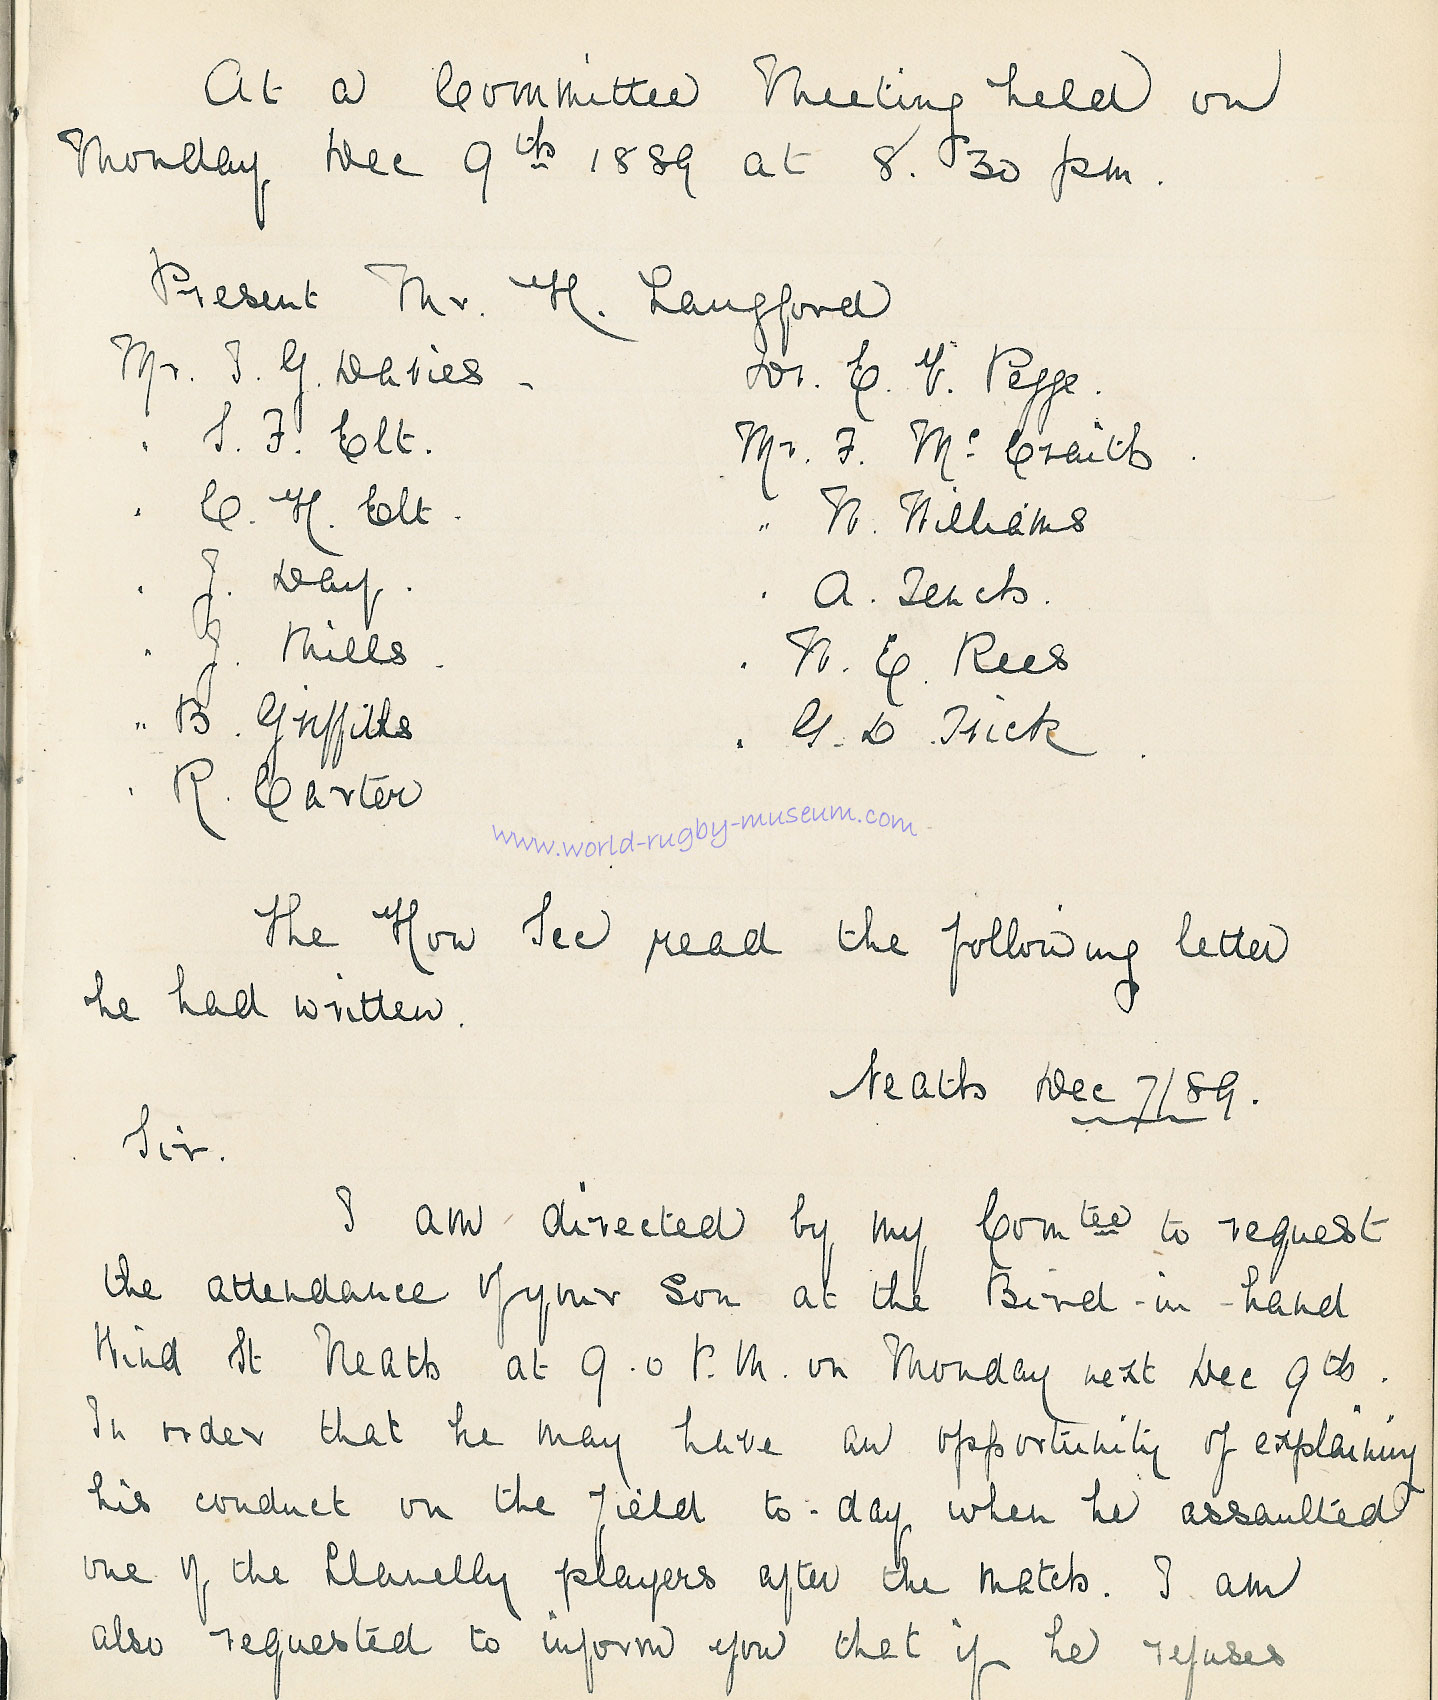 At a Committee Meeting held on
Monday Dec 9th 1889 at 8.30 pm.
Present Mr. H. Langford
Mr. T. G. Davies - Dr. E. V. Pegge.
" S. F. Elt. Mr. F. Mc Craith.
" C. H. Elt. " W. Williams
" J. Day. " A. Tench.
" J. Mills. " W. E. Rees
" B. Griffiths " G. D. Trick.
" R. Carter
www.world-rugby-museum.com
The Hon Sec read the following letter
he had written.
Neath Dec 7/89.
Sir.
I am directed by my Comtee to request
the attendance of your Son at the Bird-in-hand
Wind St Neath at 9.0 P.M. on Monday next Dec 9th.
In order that he may have an opportunity of explaining
his conduct on the field to-day when he assaulted
one of the Llanelly players after the match. I am
also requested to inform you that if he refuses